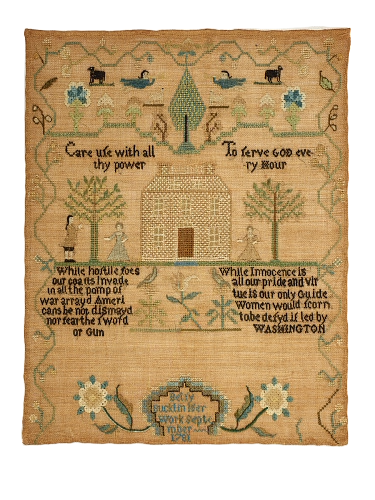 Care use with all
thy power
To serve GOD eve
ry Hour
While hostile foes
our coasts Invade
in all the pomp of
war arrayd Ameri
cans be not dismayd
nor fear the sword
or Gun
While Innocence is
all our pride and vir
tue is our only Guide
Women would scorn
to be defyd if led by
WASHINGTON
Betsy
Bucklin Iser
Work Septe
mber
1781